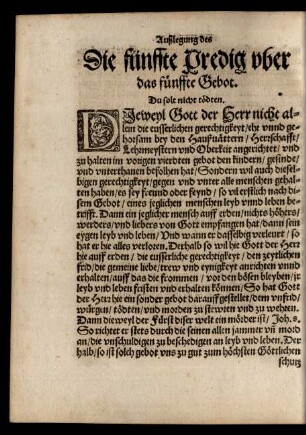 Außlegung des
Die fünffte Predig vber
das fünffte Gebot.
Du solt nicht tödten.
DJeweyl Gott der Herr nicht al-
lein die eusserlichen gerechtigkeyt / eht vnnd ge-
horsam bey den Haußuättern / Herrschafft /
Lehrmeystern vnd Oberkeit angerichtet / vnd
zu halten im vorigen vierdten gebot den kindern / gesinde /
vnd vnterthanen befolhen hat / Sondern wil auch dieselbi-
gen gerechtigkeyt / gegen vnd vnter alle menschen gehal-
ten haben / es sey freund oder feynd / so wil erstlich nach di-
sem Gebot / eines jeglichen menschen leyb vnnd leben be-
trifft. Dann ein jeglicher mensch auff erden / nichts höhers /
werders / vnd liebers von Gott empfangen hat / dann sein
eygen leyb vnd leben / Vnd wann er dasselbig verleurt / so
hat er hie alles verloren. Derhalb so wil hie Gott der Herr
hie auff erden / die eusserliche gerechtigkeyt / den zeytlichen
frid / die gemeine liebe / trew vnd eynigkeyt anrichten vnnd
erhalten / auff das die frommen / vor den bösen bleyben / jr
leyb vnd leben fristen vnd erhalten können / So hat Gott
der Herr hie ein sonder gebot darauff gestellet / dem vnfrid /
würgen / tödten / vnd morden zu stewren vnd zu wehren.
Dann dieweyl der Fürst diser welt ein mörder ist / Joh. 8.
So richtet er stets durch die seinen allen jammer vñ mord
an / die vnschuldigen zu beschedigen an leyb vnd leben. Der
halb / so ist solch gebot vns zu gut zum höchsten Göttlichen
schutz